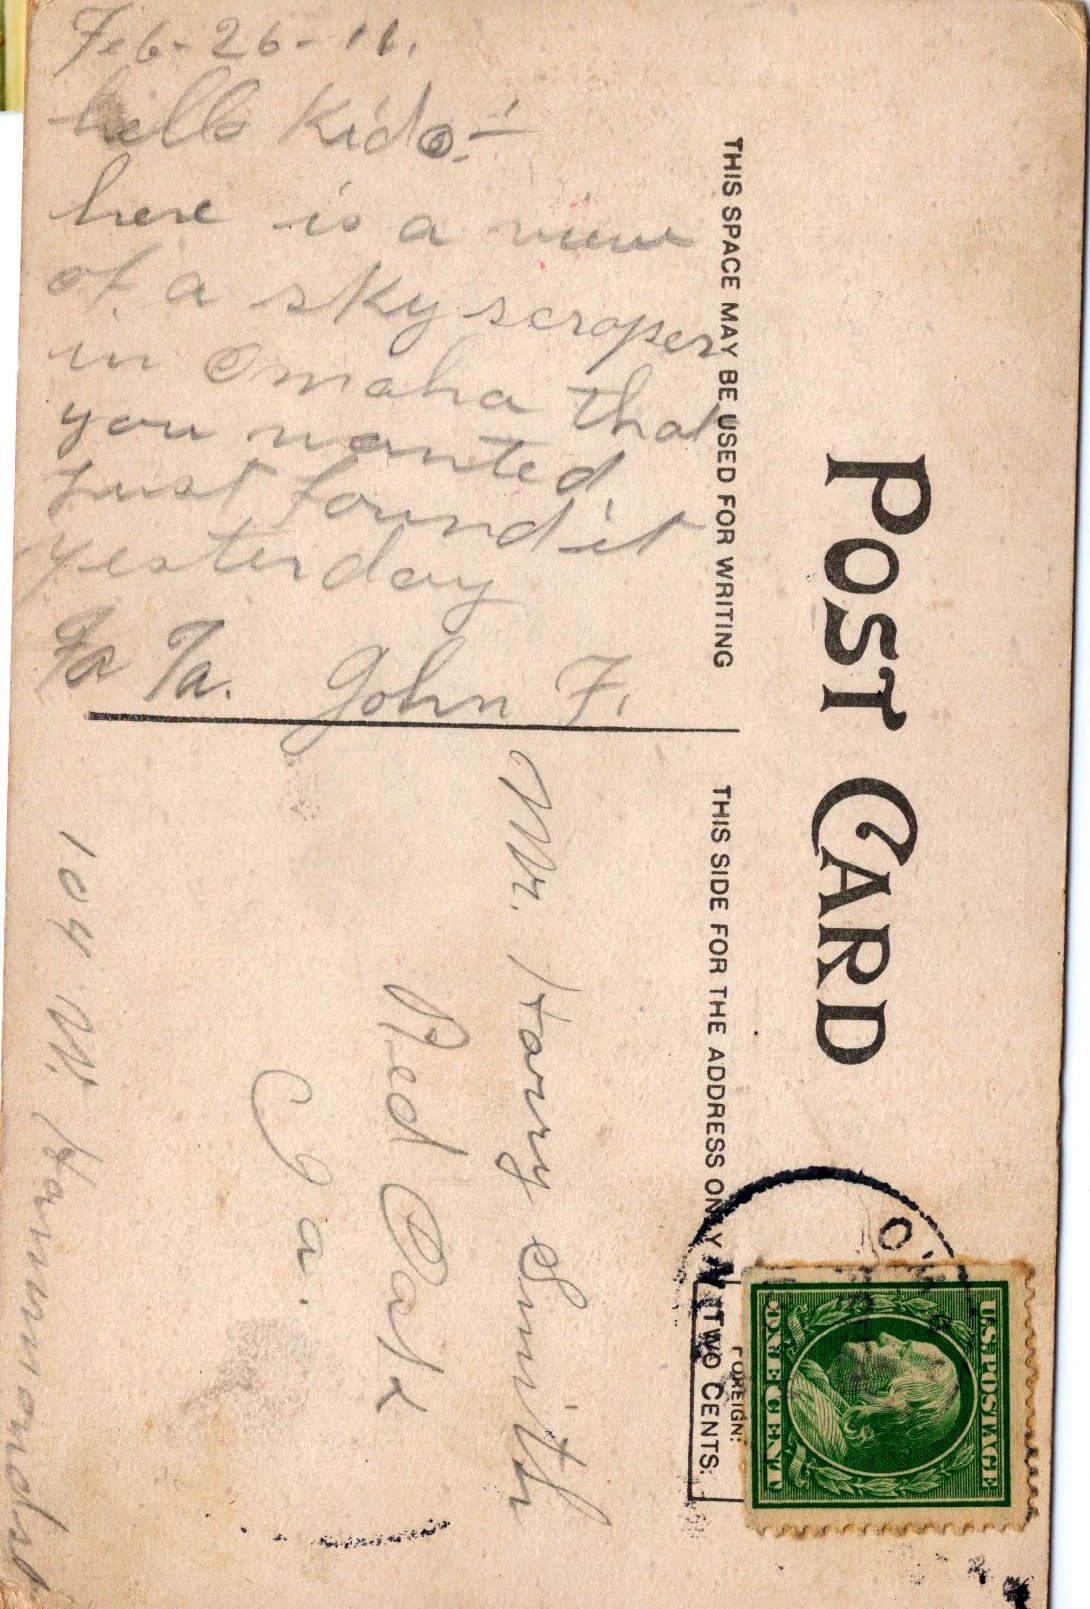 Feb-26-11.
hello Kido!-
here is a view
of a sky scraper
in Omaha that
you wanted.
Just found it
yesterday
Ta Ta. John F.
POST CARD
THIS SPACE MAY BE USED FOR WRITING
THIS SIDE FOR THE ADDRESS ONLY
U.S. POSTAGE
ONE CENT
FOREIGN:
TWO CENTS.
Mr. Harry Smith
Red Oak
Ia.
104 W. Hammond st